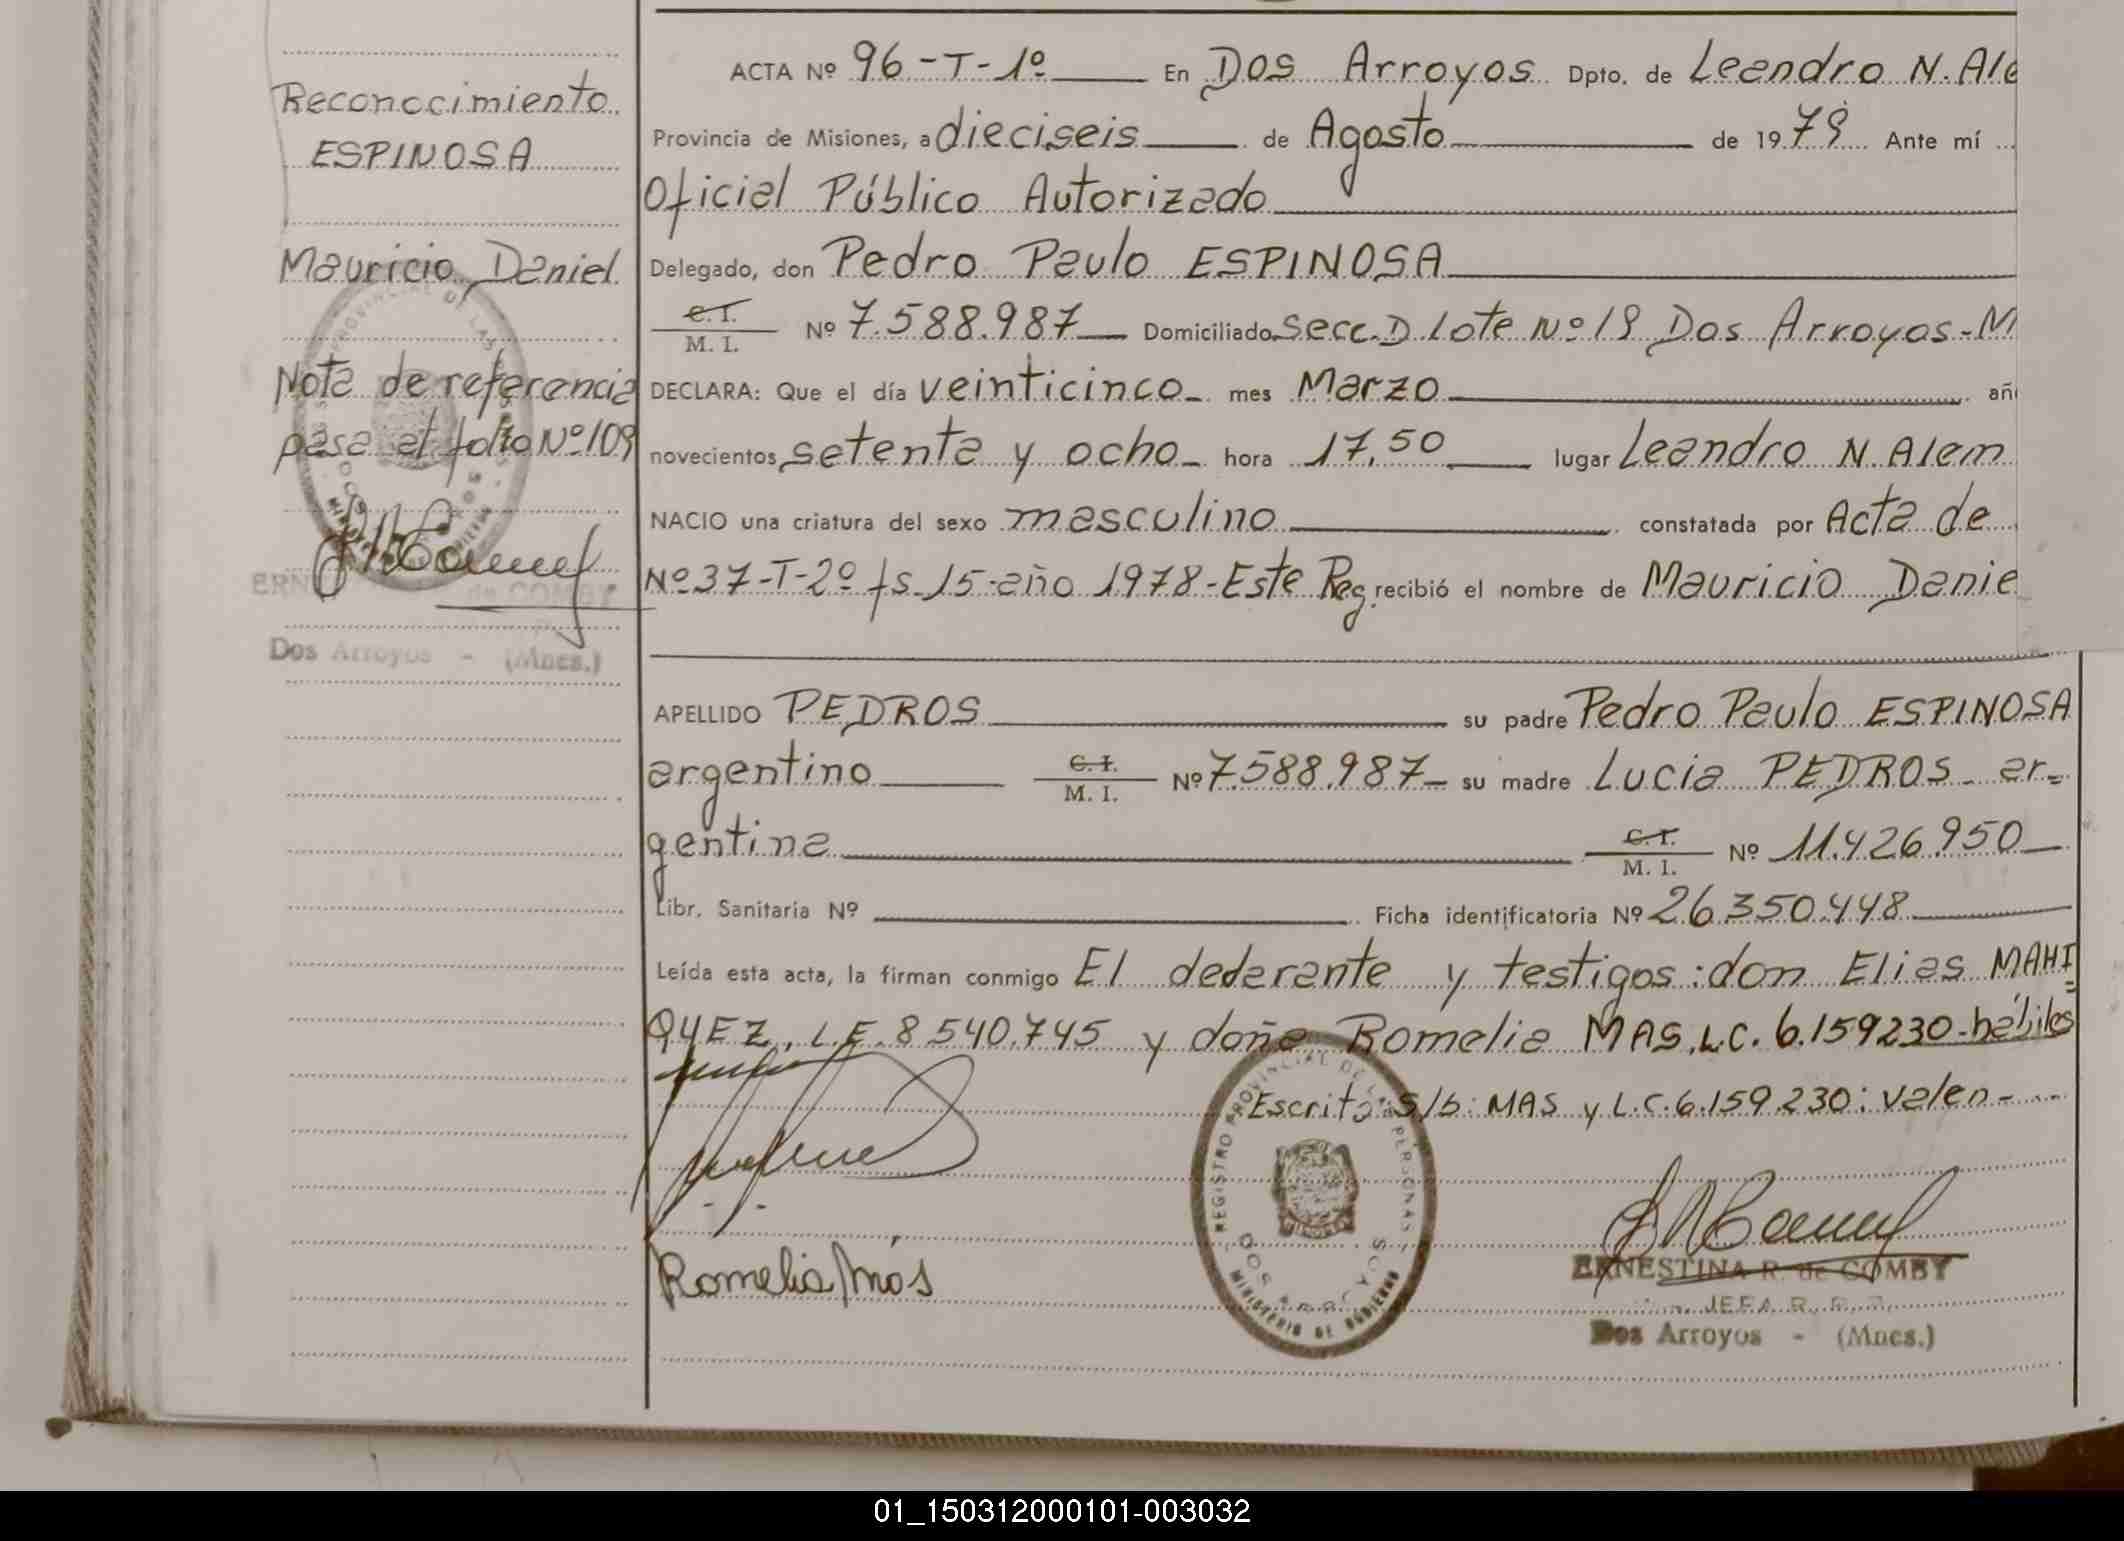 Reconocimiento
ESPINOSA
Mauricio Daniel
Nota de referencia
pasa al folio Nº 109
de COMBY
Dos Arroyos - (Mnes.)
ACTA Nº 96-T-1º En Dos Arroyos Dpto. de Leandro N. Ale
Provincia de Misiones, a dieciseis de Agosto de 1979 Ante mí
Oficial Público Autorizado
Delegado, don Pedro Paulo ESPINOSA
C.I.
M. I. Nº 7.588.987 Domiciliado Secc. D Lote Nº 19 Dos Arroyos - M
DECLARA: Que el día veinticinco mes Marzo añ
novecientos setenta y ocho hora 17,50 lugar Leandro N. Alem
NACIO una criatura del sexo masculino constatada por Acta de
Nº 37-T-2º fs. 15 año 1978 - Este Reg. recibió el nombre de Mauricio Danie
APELLIDO PEDROS su padre Pedro Paulo ESPINOSA
argentino C.I. M. I. Nº 7.588.987 su madre Lucia PEDROS - ar=
gentina C.I. M. I. Nº 11.426.950
Libr. Sanitaria Nº Ficha identificatoria Nº 26.350.448
Leída esta acta, la firman conmigo El declarante y testigos: don Elias MAHI=
QUEZ, L.E. 8.540.745 y doña Romelia MAS, L.C. 6.159230 - hábiles
Escrito S/b: MAS y L.C. 6.159.230: valen -
REGISTRO PROVINCIAL DE LAS PERSONAS
DOS ARROYOS
MINISTERIO DE GOBIERNO
Romelia Mas
ERNESTINA R. de COMBY
JEFA R. P.
Dos Arroyos - (Mnes.)
01_150312000101-003032